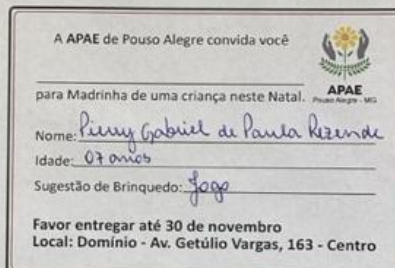 A APAE de Pouso Alegre convida você
para Madrinha de uma criança neste Natal.
APAE
Pouso Alegre - MG
Nome: Pierry Gabriel de Paula Rezende
Idade: 07 anos
Sugestão de Brinquedo: Jogo
Favor entregar até 30 de novembro
Local: Domínio - Av. Getúlio Vargas, 163 - Centro